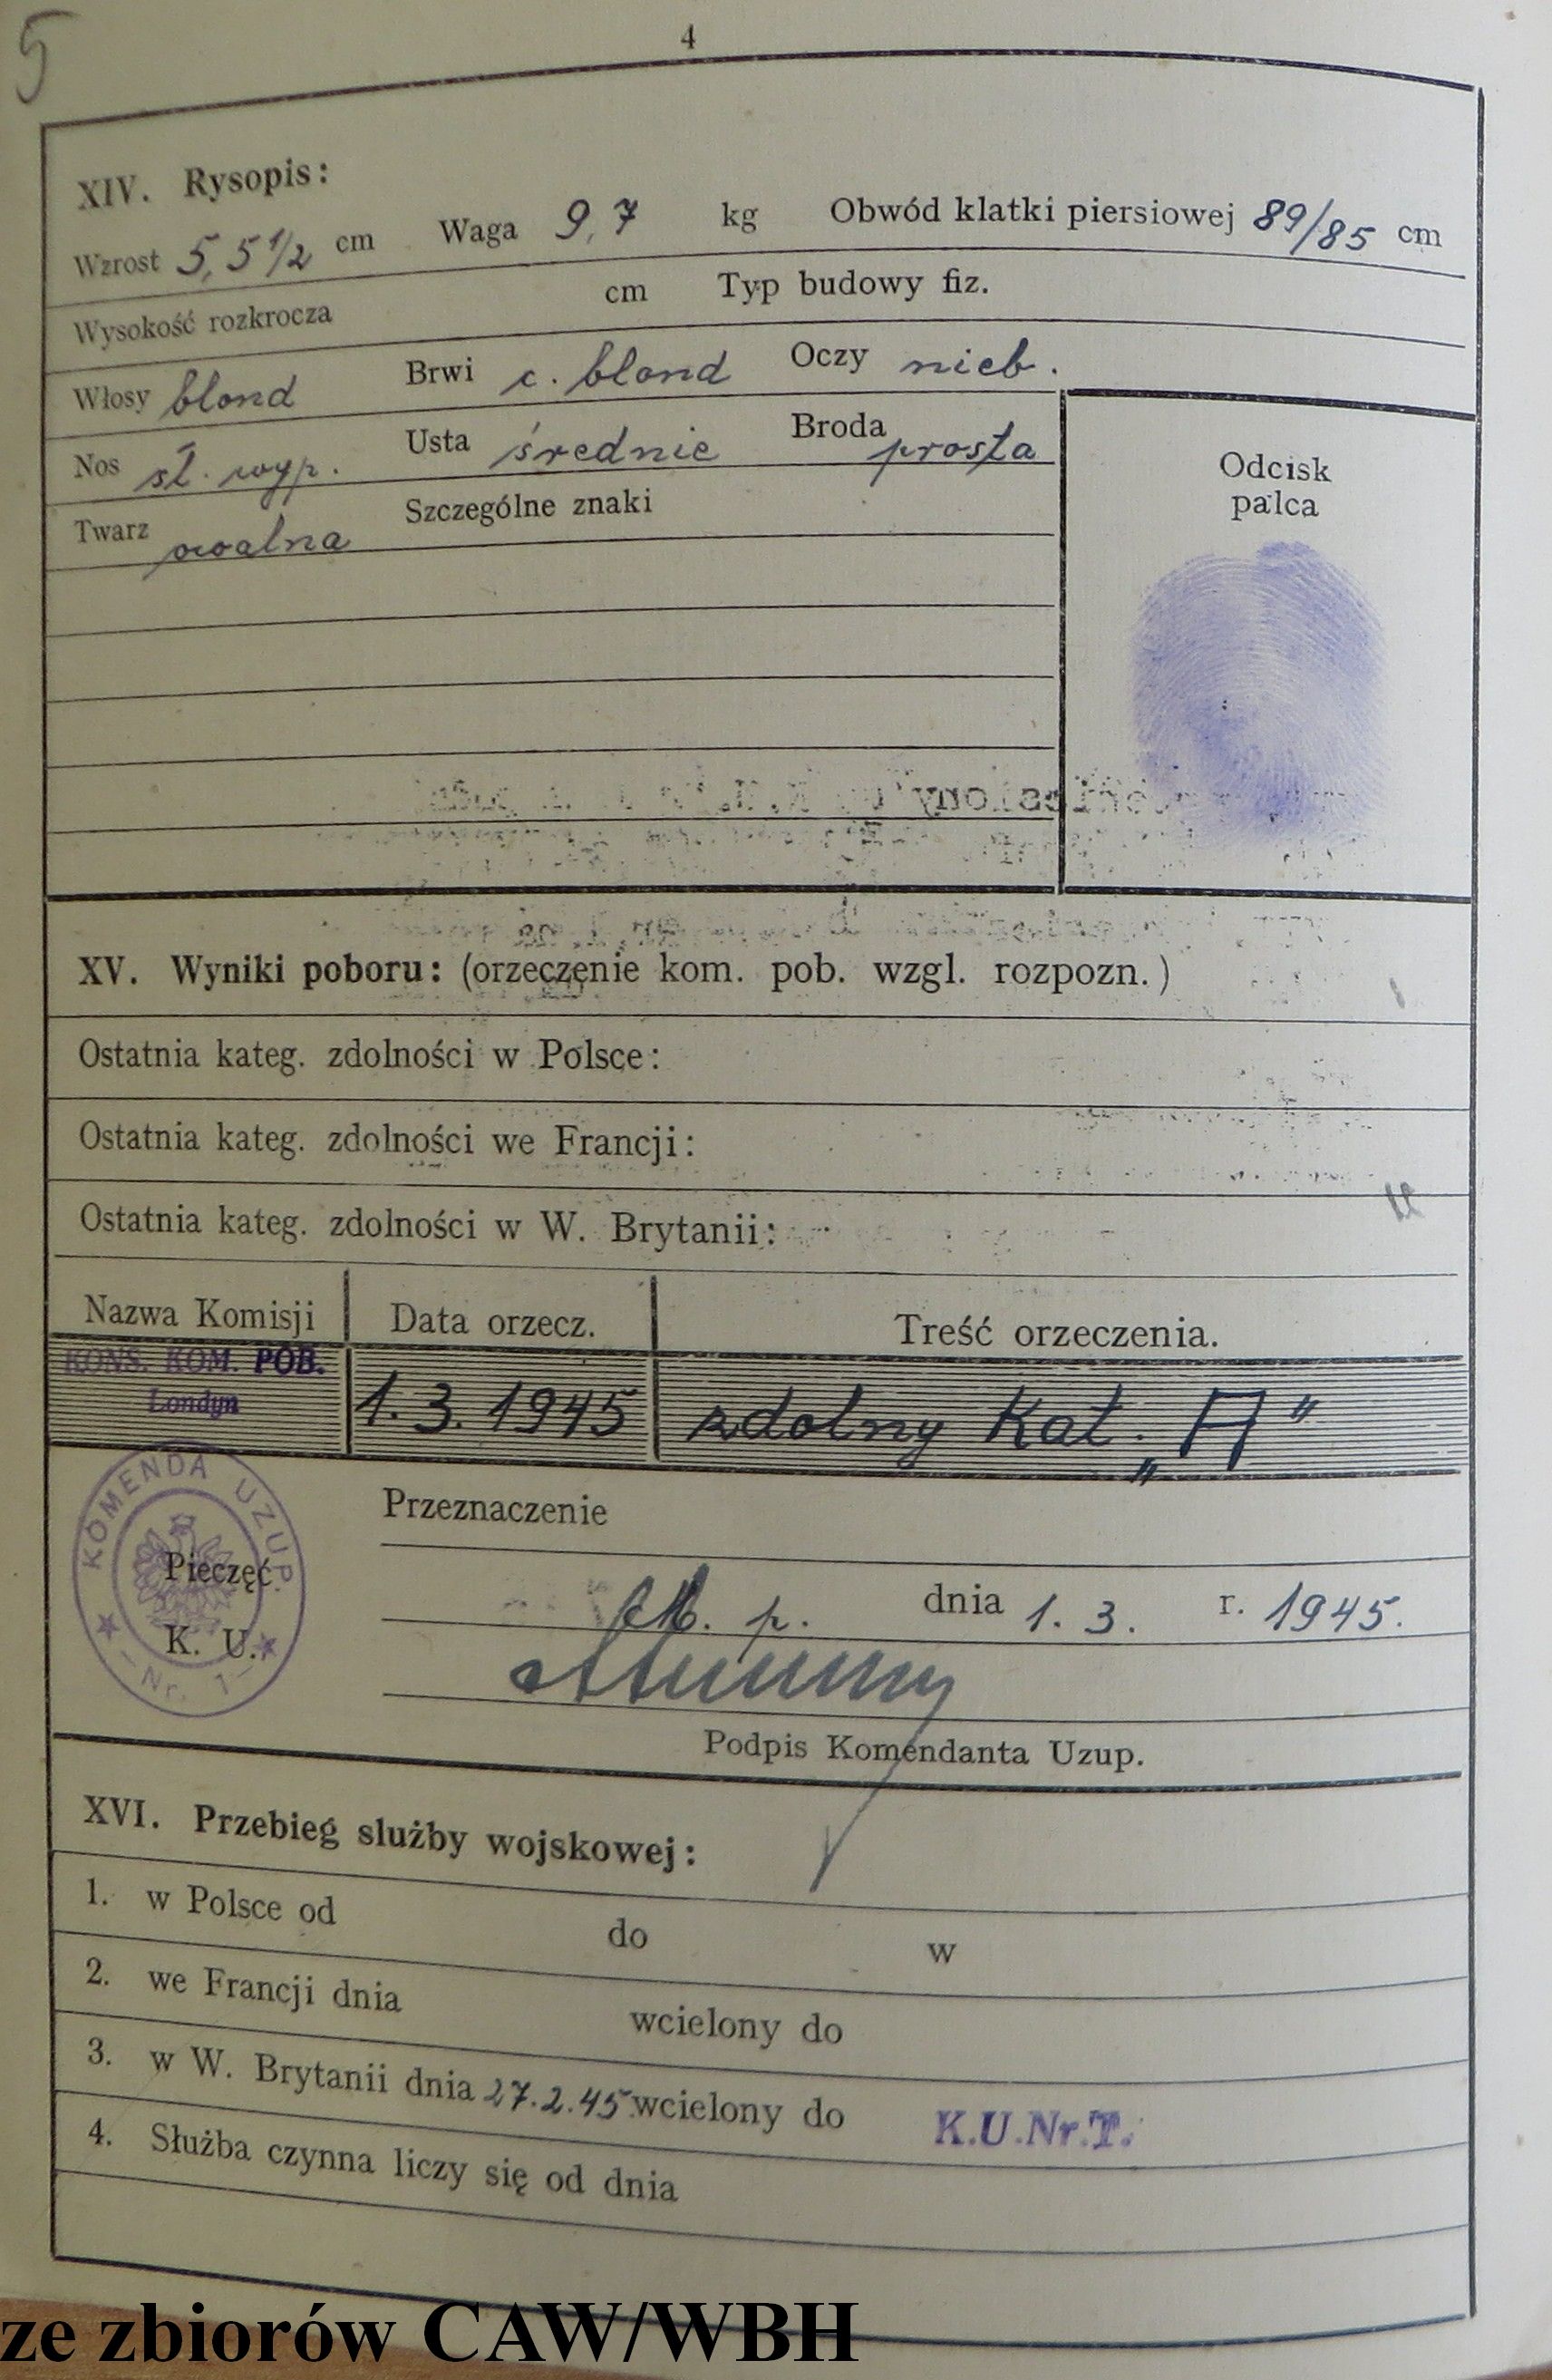 5
4
XIV. Rysopis:
Wzrost 5,5½ cm Waga 9,7 kg Obwód klatki piersiowej 89/85 cm
Wysokość rozkrocza cm Typ budowy fiz.
Włosy blond Brwi c. blond Oczy nieb.
Nos śl. wyp. Usta średnie Broda prosta
Twarz owalna Szczególne znaki
Odcisk
palca
XV. Wyniki poboru: (orzeczenie kom. pob. wzgl. rozpozn.)
Ostatnia kateg. zdolności w Polsce:
Ostatnia kateg. zdolności we Francji:
Ostatnia kateg. zdolności w W. Brytanii:
Nazwa Komisji Data orzecz. Treść orzeczenia.
KONS. KOM. POB.
Londyn
1.3.1945 zdolny Kat. „A"
KOMENDA UZUP.
Nr. 1
Pieczęć
K. U.
Przeznaczenie
M. p. dnia 1. 3. r. 1945.
Podpis Komendanta Uzup.
XVI. Przebieg służby wojskowej:
1. w Polsce od do w
2. we Francji dnia wcielony do
3. w W. Brytanii dnia 27.2.45 wcielony do K.U.Nr.1.
4. Służba czynna liczy się od dnia
ze zbiorów CAW/WBH